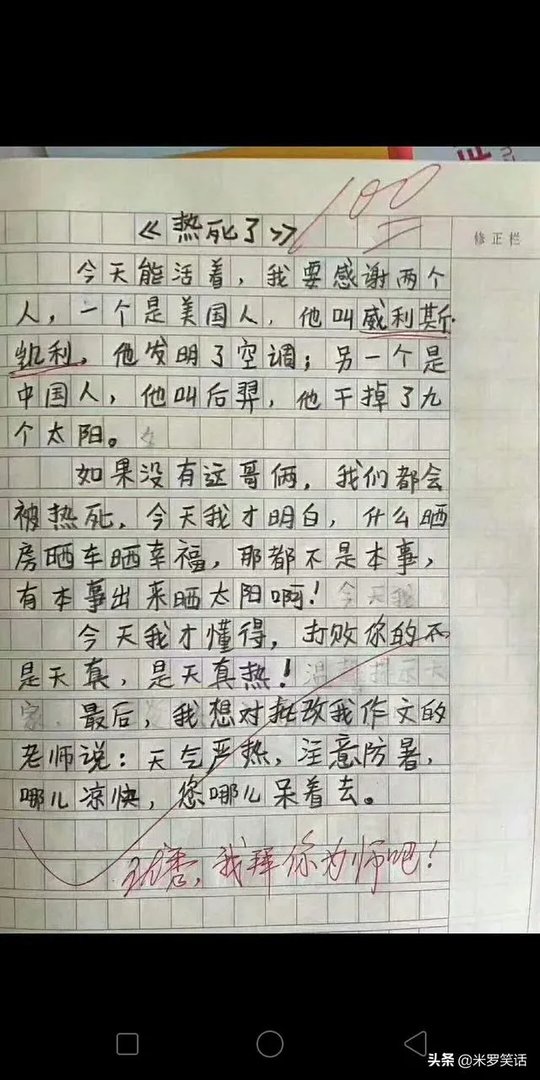 100
《热死了》
修正栏
今天能活着，我要感谢两个
人，一个是美国人，他叫威利斯·
凯利，他发明了空调；另一个是
中国人，他叫后羿，他干掉了九
个太阳。
如果没有这哥俩，我们都会
被热死，今天我才明白，什么晒
房晒车晒幸福，那都不是本事，
有本事出来晒太阳啊！今天我
今天我才懂得，打败你的不
是天真，是天真热！温馨提示大
家，最后，我想对批改我作文的
老师说：天气严热，注意防暑，
哪儿凉快，您哪儿呆着去。
我拜你为师吧！
头条 @米罗笑话